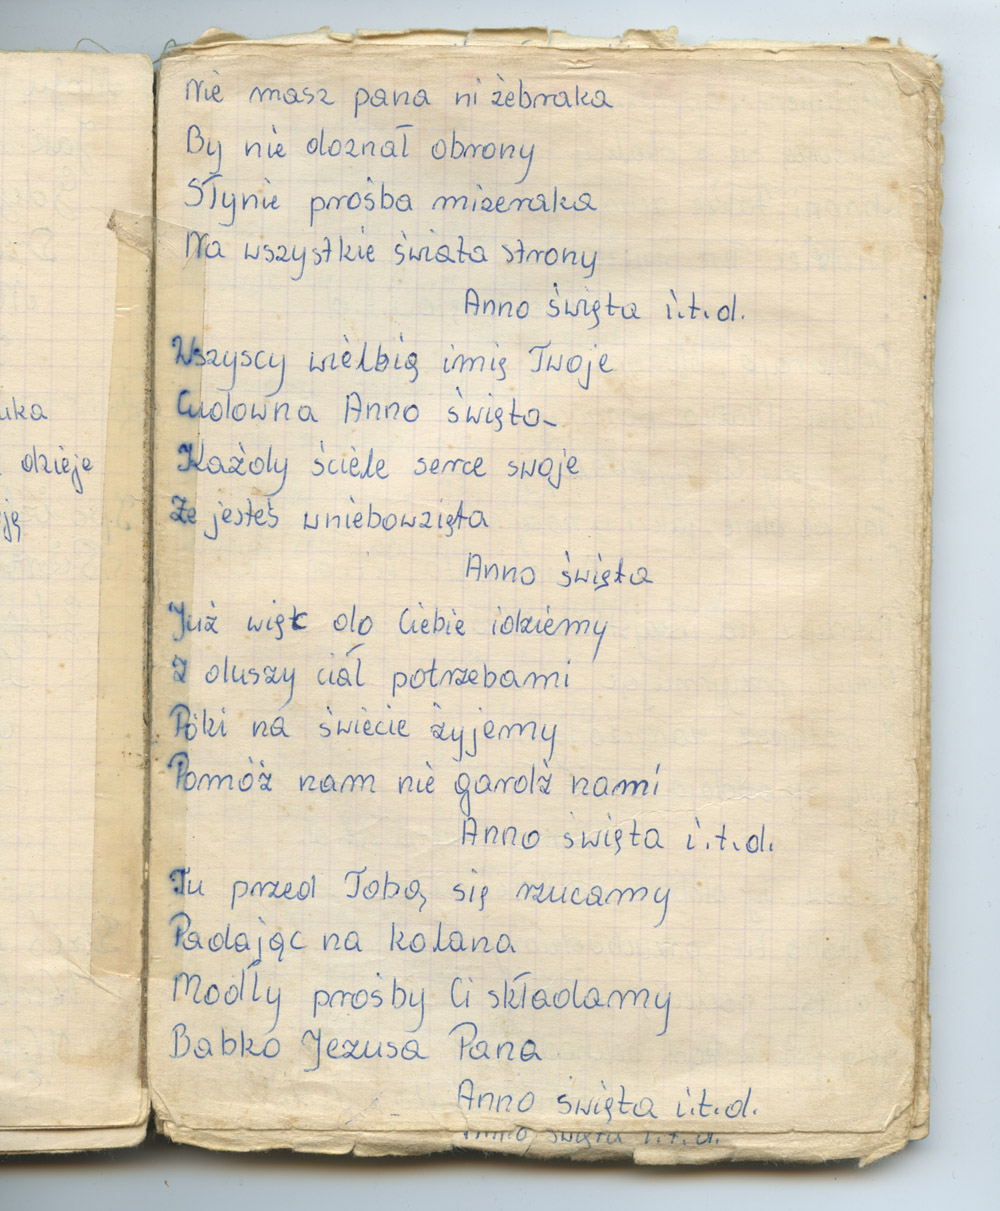 Nie masz pana ni żebraka
By nie doznał obrony
Słynie prośba mizeraka
Na wszystkie świata strony
Anno święta i.t.d.
Wszyscy wielbią imię Twoje
Cudowna Anno święta
Każdy ściele serce swoje
Że jesteś wniebowzięta
Anno święta
Już więc do Ciebie idziemy
Z duszy ciał potrzebami
Póki na świecie żyjemy
Pomóż nam nie gardź nami
Anno święta i.t.d.
Tu przed Tobą się rzucamy
Padając na kolana
Modły prośby Ci składamy
Babko Jezusa Pana
Anno święta i.t.d.
Anno święta i.t.d.
dzieje